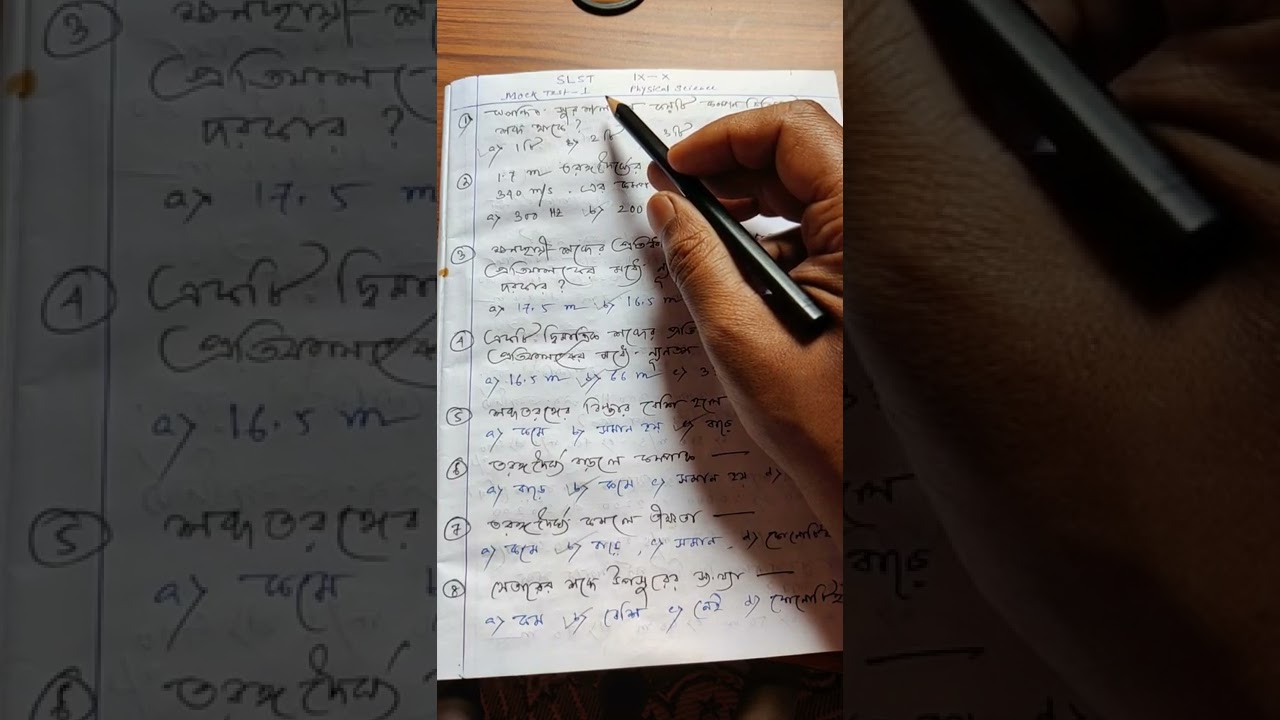 SLST IX-X
Mock Test-1 Physical Science
①
শব্দ আছে?
a> 1টি b> 2টি 3টি
② 1.7 m তরঙ্গদৈর্ঘ্যের
340 m/s. এর কম্পা
a> 300 Hz b> 200
③ ক্ষনস্থায়ী শব্দের প্রতিধ্ব
প্রতিফলকের মধ্যে
দরকার?
a> 17.5 m b> 16.5 m
④ একটি দ্বিমাত্রিক শব্দের প্রতি
প্রতিফলকের মধ্যে ন্যূনতম
a> 16.5 m b> 66 m c> 3
⑤ শব্দতরঙ্গের বিস্তার বেশি হলে
a> কমে b> সমান হয় c> বাড়ে
⑥ তরঙ্গদৈর্ঘ্য বাড়লে কম্পাঙ্ক —
a> বাড়ে b> কমে c> সমান হয় d>
⑦ তরঙ্গদৈর্ঘ্য কমলে তীক্ষ্ণতা —
a> কমে b> বাড়ে c> সমান d> কোনোটিই
⑧ সেতারের শব্দে উপসুরের সংখ্যা —
a> কম b> বেশি c> নেই d> কোনোটিই